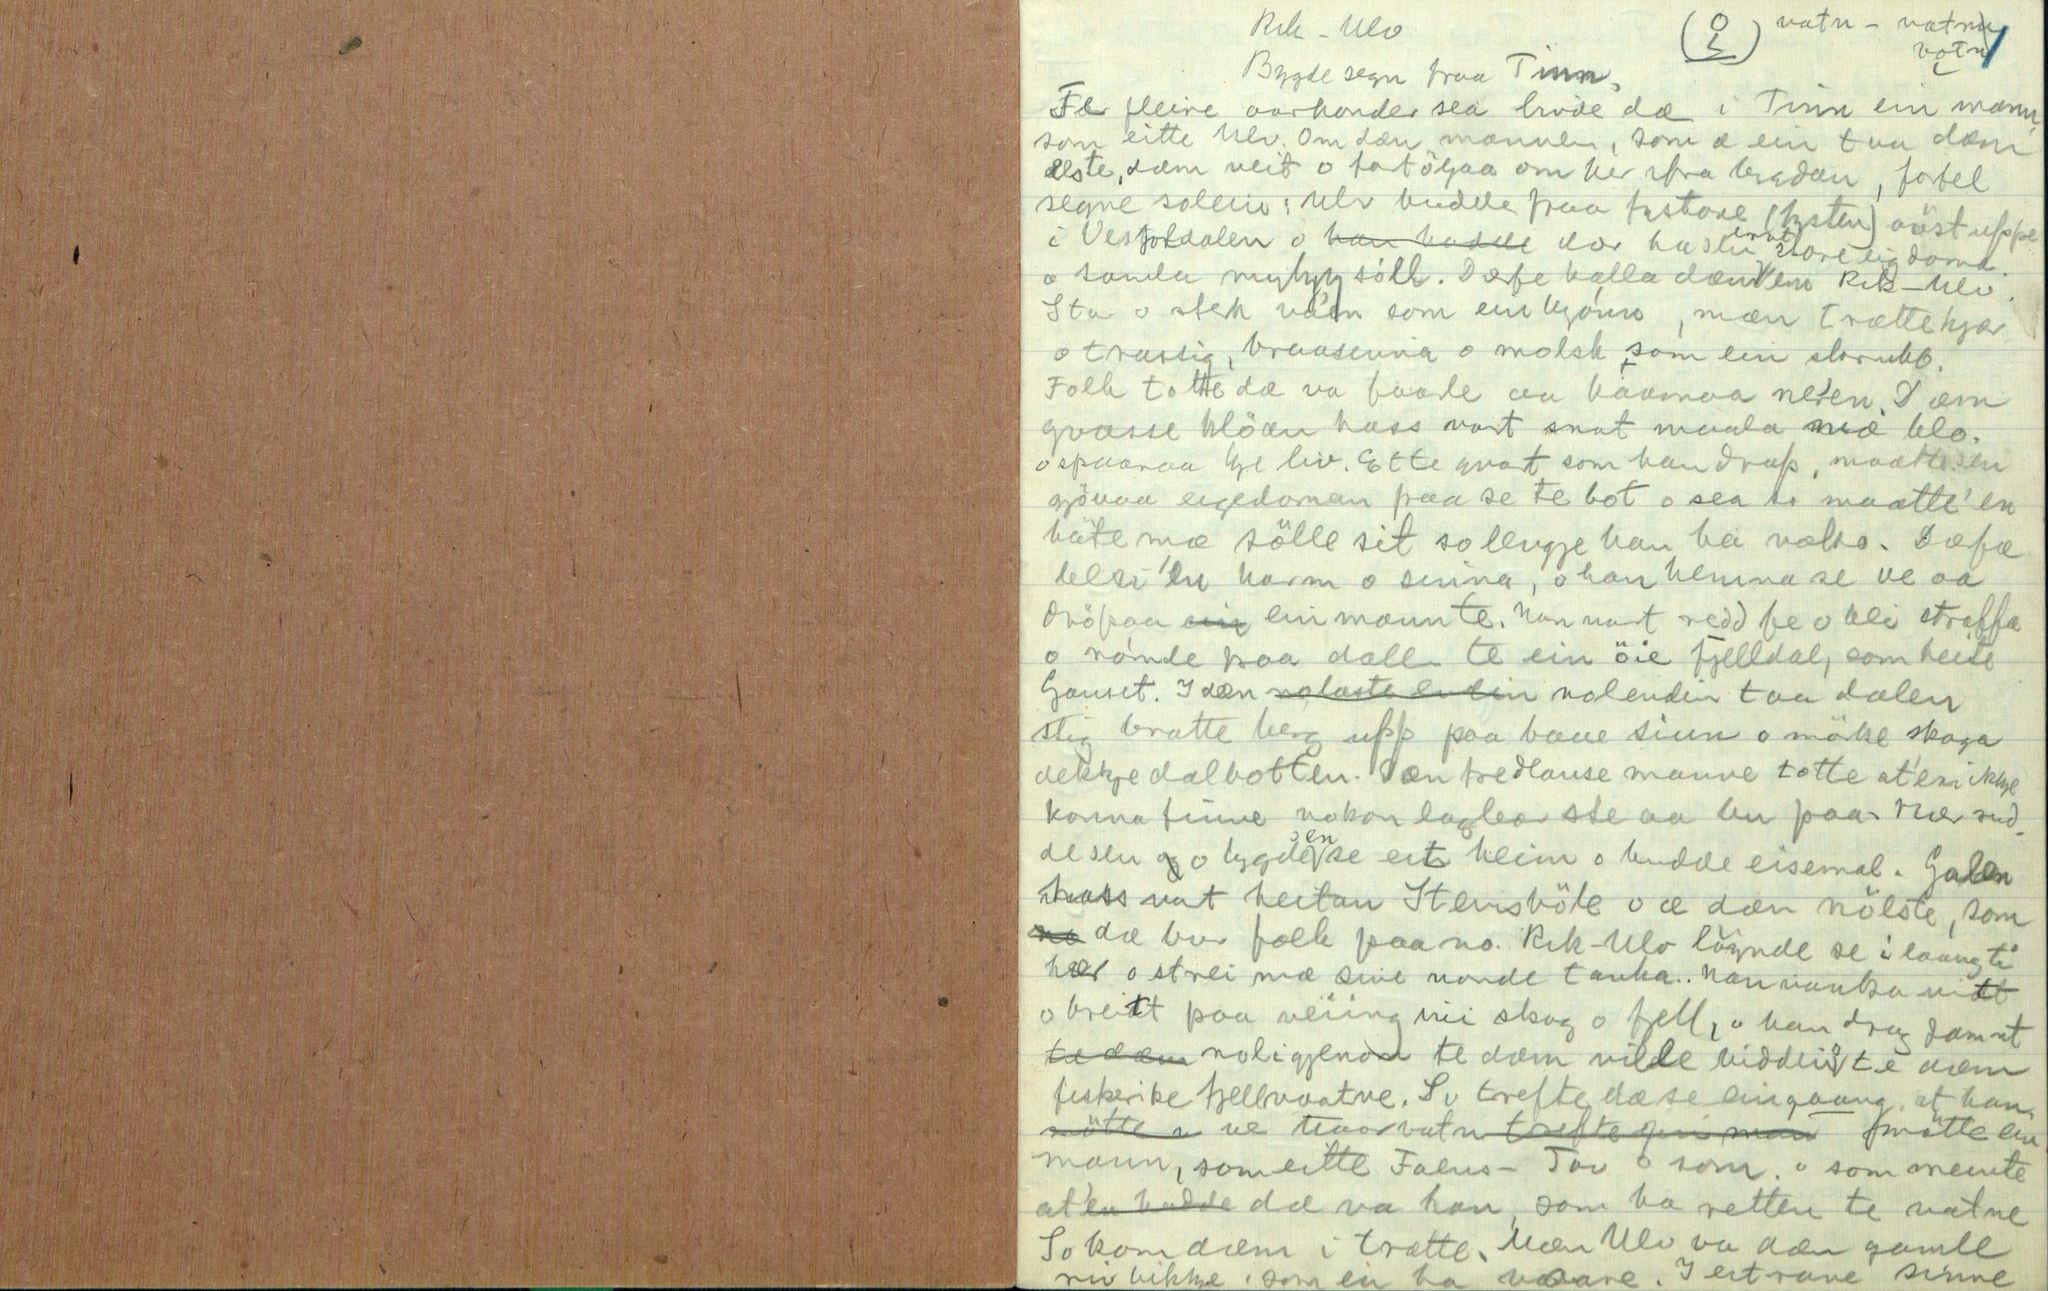 Rik-Ulv
vatn - vatnu
votn
1
Bygdesegn fraa Tinn.
Fe fleire aarhonder sea budde dæ i Tinn ein mann,
som eitte Ulv. Om dæn mannen, som æ ein tua dæm
ælste, dæm veit o fortöljaa om her ifra bygdæn, fortel
segne soleis: Ulv budde paa Systaae (systen) aust uppe
i Vesfjordalen o han hadde dær hasla store eigdoma
o samla mykjy söll. Dæfe kalla dæm en Rik-Ulv.
Sto o sterk va'n som ein kjömn, mæn trættekjær
o trassig, braasinna o molsk som ein skrubb.
Folk totte dæ va faarle aa kaamaa nær en. Dæm
gvasse klöæn hass vart snat maala mæ blo.
o spaaraa kje liv. Ette qvart som han drap, maatte en
gjövaa eigedoman fraa se te bot o sea so maatte'en
böte mæ sölle sit so lengje han ha noko. Dæfø
blei'en harm o sinna, o han hemna se ve aa
dröpaa ein ein mann te. Han vart redd fe o bli straffa
o römde fraa dalen te ein öie fjelldal, som heite
Gauset. I dæn nolaste endin nolendin taa dalen
stig bratte berg upp paa baae siun o mörke skoga
dekkje dalbotten. Dæn fredlause manne totte at'en ikkje
konna finne nokon laglear ste aa bu paa. Her rud-
de sen o bygde en se eit heim o budde eisemal. Galen
hass vart heitan Steinsböle o æ dæn nölste, som
no dæ bur folk paa no. Rik-Ulv löynde se i laang ti
hær o strei mæ sine vonde tanka. Han vanka vidt
o breidt paa veiing uti skog o fjell, o han drog jamnt
te dæm noligjenom te dæm ville viddein o te dæm
fiskerike fjellvaatne. So trefte dæ se ein gaang, at han
mötte ve vatn trefte ein man mötte ein
mann, som eitte Faens-Tov o som o som meinte
at en hadde dæ va han, som ha retten te vatne
So kom dæm i trætte. Mæn Ulv va dæn gamle
rivbikkje, som en ha vaare. I eit rane sinne